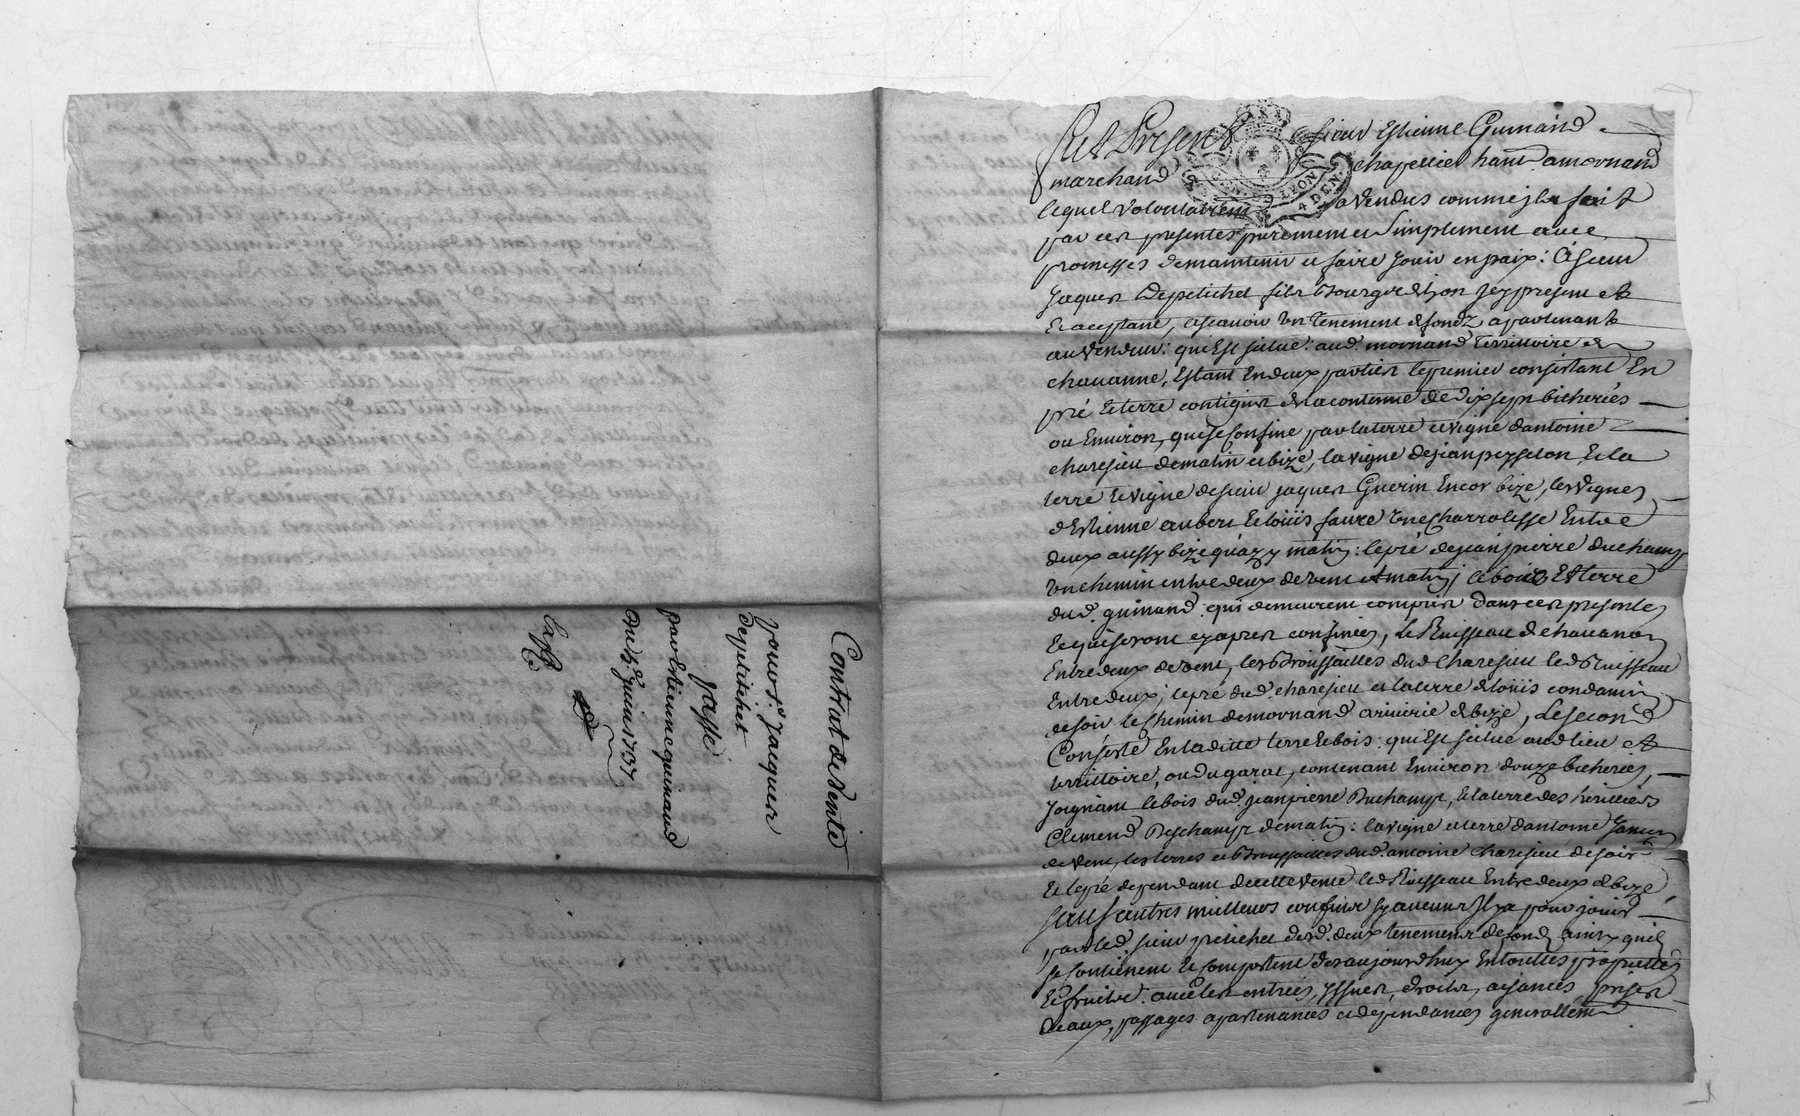 Fut Present sieur Estienne Guinand
marchand chapellier hant a mornand
lequel volontairemt a vendus comme jl a fait
par ces presentes purement et simplement avec
promesses de maintenir et faire jouir en paix: A sieur
Jaques Depetichet fils Bourgs de Lyon jcy present et
Et aceptant, ascavoir un tenement de fondz apartenant
au vendeur: qui Est situé: aud. mornand territtoire de
chauanne, Estant En deux parties le premier consistant En
pré Et terre contigus de la contenue de dix sept bicherées
ou Environ, qui se Confine par la terre et vigne dantoine
charesieu de matin et bize, la vigne de jean peysselon, Et la
terre Et vigne de sieur jaques Guerin Encor bize, les vignes
dEstienne aubert Et loüis faure une Charralisse Entre
deux aussy bize quazy matin: le pré de jean pierre duchamp
un chemin entre deux de vent et matin; le bois Et terre
dud. guinand: qui demeurent compris dans ces presentes
Et qui seront cy apres confinées, le Ruisseau de chauanon
Entre deux de vent, les Broussailles dud. Charesieu led. Ruisseau
Entre deux; le pré dud. charesieu et la terre de loüis condamin
de soir le chemin de mornand a riverie de bize, Le second
Consiste En la ditte terre Et bois: qui Est située aud. lieu Et
territtoire, ou du garat, contenant Environ douze bicherées,
Joignant le bois dud. jean pierre Duchamp, Et la terre des héritiers
Clemend Deschamps de matin: la vigne et terre dantoine
de vent, les terres et Broussailles dud. antoine charesieu de soir
Et le pré dependant de cette vente led. Ruisseau Entre deux de bize
sauf autres meilleurs confins sy aucuns Il y a pour jouir
par led. sieur petichet desd. deux tenements de fondz ainsy quils
se contienent Et comportent des aujourdhuy En touttes proprietées
Et fruits. avec les entrées, yssues, droits, aisances, prises
deaux, passages apartenances et dependances generallemt
Contrat de Vente
pour sr. Jacques
depetitchet
passé
par estienne guinand
du 4e. juin 1737